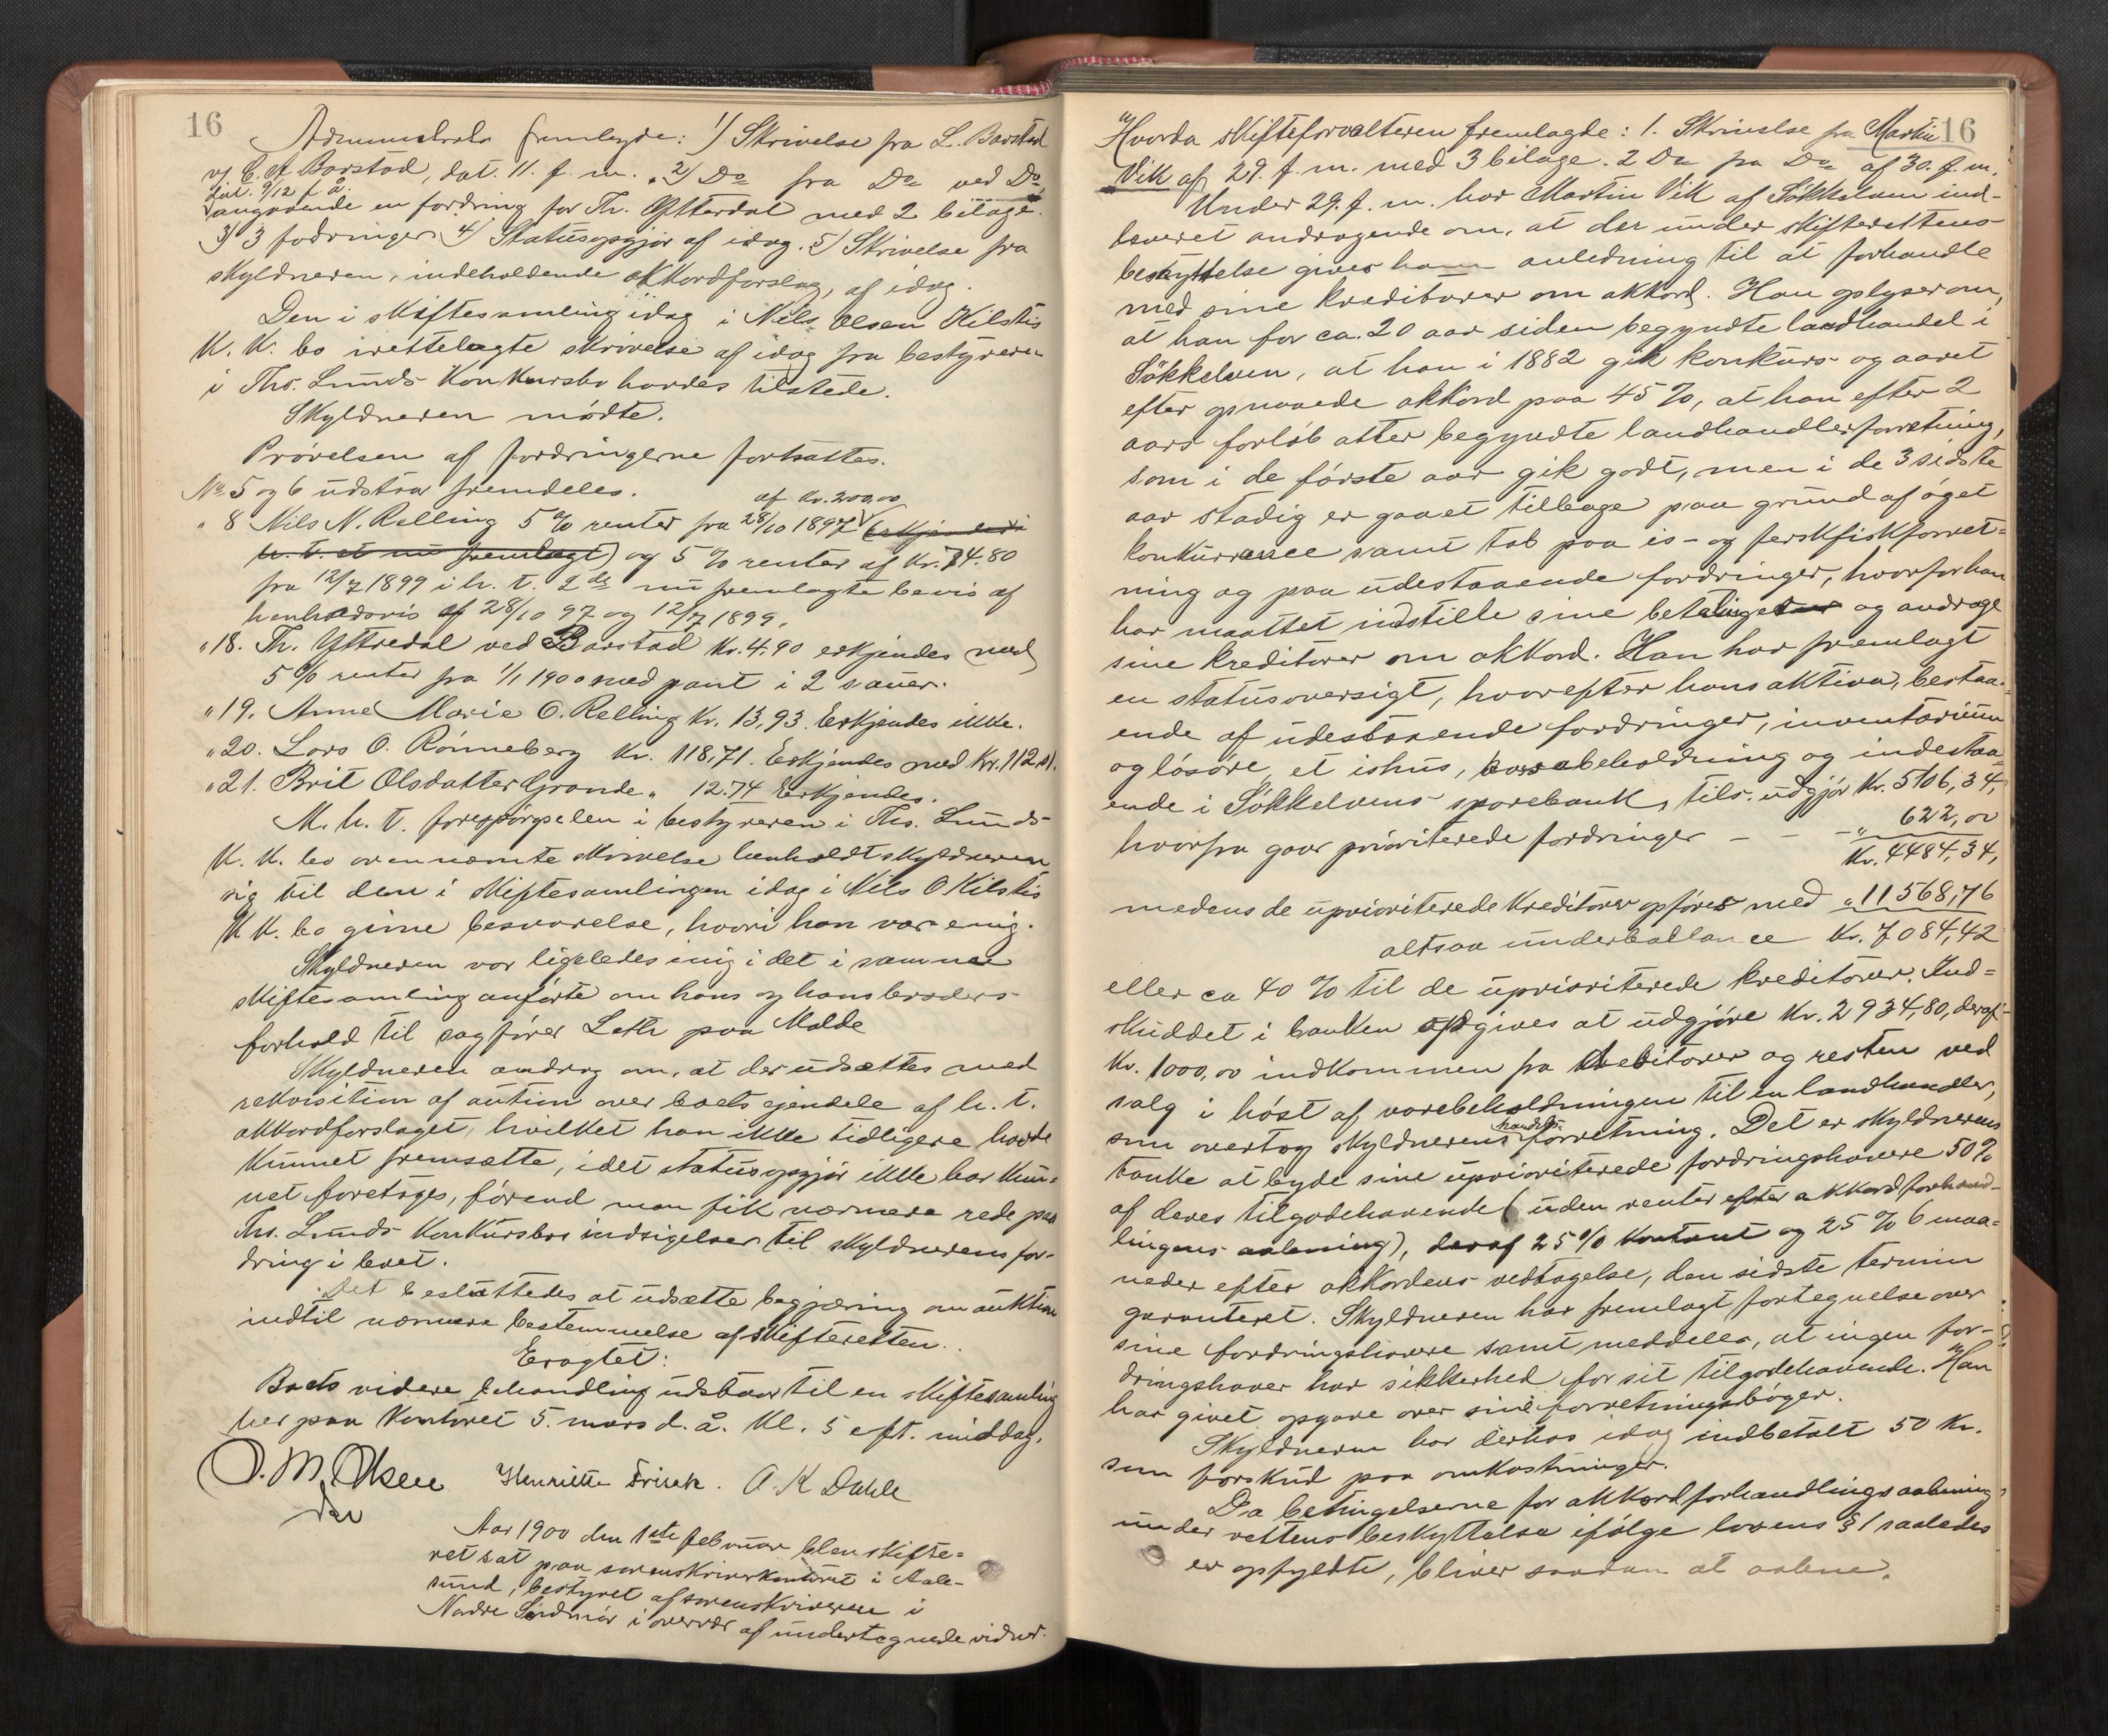 16
Administrator fremlagde: 1) Skrivelse fra L. Barstad
v/ C. A. Barstad, dat. 11. f. m. 2) Do fra Do ved Do,
dat. 9/12 f. å.
angaaende en fordring for Th. Ytterdal med 2 bilage.
3) 3 fordringer 4) Statusopgjør af idag. 5) Skrivelse fra
skyldneren, indeholdende akkordforslag, af idag.
Den i skiftesamling idag i Nils Olsen Kilstis
K. K. bo irettelagte skrivelse af idag fra bestyreren
i Ths. Lunds Konkursbo havdes tilstede.
Skyldneren mødte.
Prøvelsen af fordringerne fortsattes.
No 5 og 6 udstaar fremdeles.
af Kr. 200,00
" 8 Nils N. Relling 5 % renter fra 28/10 1897 (erkjendes i
h. t. et nu fremlagt) og 5 % renter af Kr. 74.80
fra 12/7 1899 i h. t. 2de nu fremlagte bevis af
henholdsvis af 28/10 97 og 12/7 1899.
" 18. Th. Yttredal ved Barstad Kr. 4.90 erkjendes med
5 % renter fra 1/1 1900 med pant i 2 sauer.
" 19. Anne Marie O. Relling Kr. 13,93. Erkjendes ikke.
" 20. Lars O. Rønneberg Kr. 118,71. Erkjendes med Kr. 112,
" 21. Brit Olsdatter Grande " 12.74 Erkjendes.
M. h. t. forespørgselen i bestyreren i Ths. Lunds
K. K. bo ovennævnte skrivelse henholdt skyldneren
sig til den i skiftesamlingen idag i Nils O Kilstis
K K. bo givne besvarelse, hvori han var enig.
Skyldneren var ligeledes enig i det i samme
skiftesamling anførte om hans og hans broders
forhold til sagfører Leth paa Molde
Skyldneren androg om, at der udsættes med
rekvisition af auktion over boets ejendele af h. t.
akkordforslaget, hvilket han ikke tidligere havde
kunnet fremsætte, idet statusopgjør ikke har kun-
net foretages, førend man fik nærmere rede paa
Ths. Lunds Konkursbos indsigelser til skyldnerens for-
dring i boet.
Det besluttedes at udsætte begjæring om auktion
indtil nærmere bestemmelse af skifteretten.
Eragtet:
Boets videre behandling udstaar til en skiftesamling
her paa Kontoret 5. mars d. å. Kl. 5 eft. middag.
O. M. Olsen Henriette Frisak. A. K Dahle
Aar 1900 den 1ste februar blev skifte-
ret sat paa sorenskriverkontoret i Aale-
sund, bestyret af sorenskriveren i
Nordre Søndmør i overvær af undertegnede vidner.
16
Hvorda skifteforvalteren fremlagde: 1. Skrivelse fra Martin
Vik af 29. f. m. med 3 bilage. 2 Do fra Do af 30. f. m.
Under 29. f. m. har Martin Vik af Søkkelven ind-
leveret andragende om, at der under skifterettens
beskyttelse gives ham anledning til at forhandle
med sine kreditorer om akkord. Han oplyser om,
at han for ca. 20 aar siden begyndte landhandel i
Søkkelven, at han i 1882 gik konkurs og aaret
efter opnaaede akkord paa 45 %, at han efter 2
aars forløb atter begyndte landhandlerforretning,
som i de første aar gik godt, men i de 3 sidste
aar stadig er gaaet tilbage paa grund af øget
konkurrance samt tab paa is- og ferskfiskforret-
ning og paa udestaaende fordringer, hvorfor han
har maattet indstille sine betalinger og andrage
sine kreditorer om akkord. Han har fremlagt
en statusoversigt, hvorefter hans aktiva, bestaa-
ende af udestaaende fordringer, inventarium
og løsøre, et ishus, varebeholdning og indestaa-
ende i Søkkelvens sparebank, tils. udgjør Kr. 5106,34,
hvorfra gaar prioriterede fordringer - - - " 622,00
Kr. 4484,34,
medens de uprioriterede kreditorer opføres med " 11568,76
altsaa underballance Kr. 7084,42
eller ca 40 % til de uprioriterede kreditorer. Ind-
skuddet i banken opgives at udgjøre Kr. 2934,80, deraf
Kr. 1000,00 indkommen fra debitorer og resten ved
salg i høst af varebeholdningen til en landhandler,
handels
som overtog skyldnerens forretning. Det er skyldnerens
tanke at byde sine uprioriterede fordringshavere 50 %
af deres tilgodehavende (uden renter efter akkordforhand-
lingens aabning), deraf 25 % kontant og 25 % 6 maa-
neder efter akkordens vedtagelse, den sidste termin
garanteret. Skyldneren har fremlagt fortegnelse over
sine fordringshavere samt meddeler, at ingen for-
dringshaver har sikkerhed for sit tilgodehavende. Han
har givet opgave over sine forretningsbøger.
Skyldneren har derhos idag indbetalt 50 Kr.
som forskud paa omkostninger.
Da betingelserne for akkordforhandlings aabning
under rettens beskyttelse ifølge lovens § 1 saaledes
er opfyldte, bliver saadan at aabne.